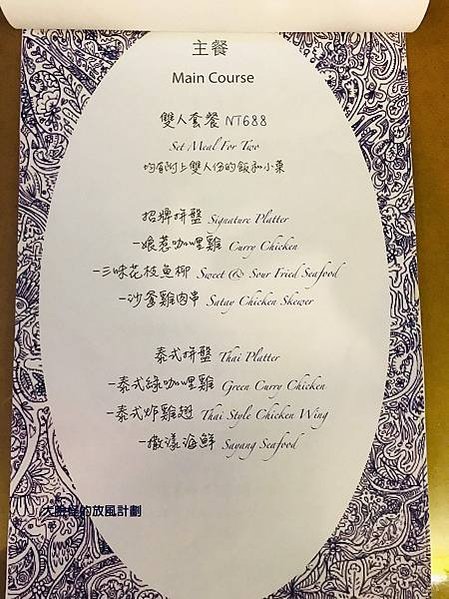 主餐
Main Course
雙人套餐 NT688
Set Meal For Two
均有附上雙人份的飯和小菜
招牌拼盤 Signature Platter
-娘惹咖哩雞 Curry Chicken
-三味花枝魚柳 Sweet & Sour Fried Seafood
-沙嗲雞肉串 Satay Chicken Skewer
泰式拼盤 Thai Platter
-泰式綠咖哩雞 Green Curry Chicken
-泰式炸雞翅 Thai Style Chicken Wing
-撒漾海鮮 Sayang Seafood
的放風計劃